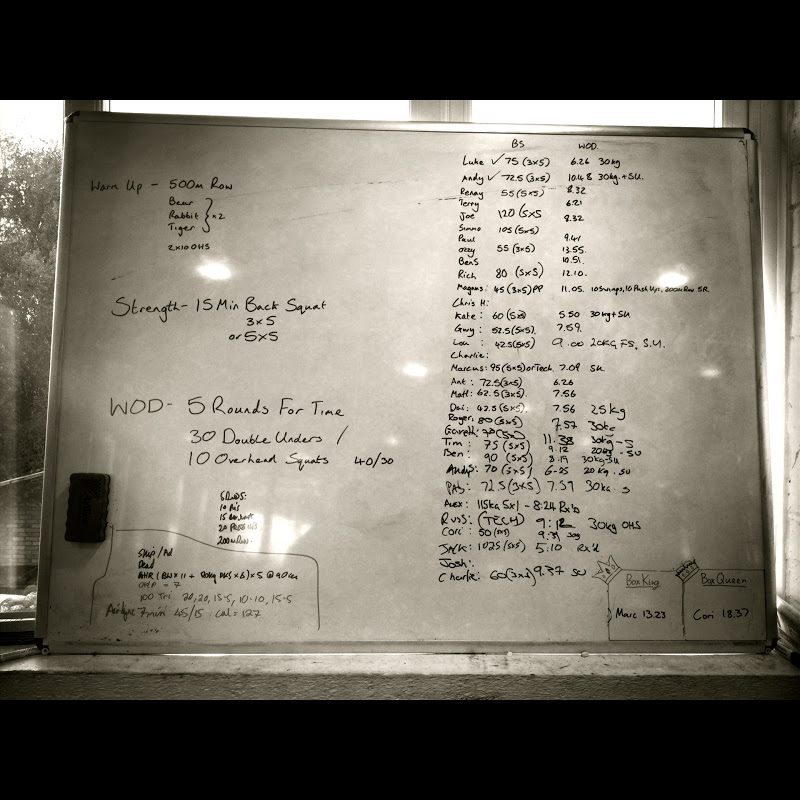 Warm Up - 500m Row
Bear
Rabbit } x2
Tiger
2x10 OHS
Strength - 15 Min Back Squat
3x5
or 5x5
WOD - 5 Rounds For Time
30 Double Unders /
10 Overhead Squats 40/30
5 Rds:
200m Row
Skip/
Dead
OHP = 7
100 Tri 20, 20, 15-5, 10-10, 15-5
Airdyne 7 min 45/15 Cal = 127
BS WOD
Luke ✓ 75 (3x5) 6.26 30kg
Andy ✓ 72.5 (3x5) 10.48 30kg + SU
Renay 55 (5x5) 8.32
Terry 6.21
Joe 120 (5x5 8.32
Simmo 105 (5x5)
Paul 9.41
Ozzy 55 (3x5) 13.55
BenS 10.51
Rich 80 (5x5) 12.10
Magnus: 45 (3x5) PP 11.05
Chris H:
Kate: 60 (5x3) 5.50 30kg + SU
Gwy: 52.5 (5x5) 7.59
Lou: 42.5 (5x5) 9.00 20KG FS, S.U.
Charlie:
Marcus: 95 (5x5) or Tech. 7.09 SU
Ant: 72.5 (3x5) 6.26
Matt: 62.5 (3x5) 7.56
Dai: 42.5 (5x5) 7.56 25kg
Roger: 80 (5x5) 7.57 30kg
Gareth:
Tim: 75 (5x5) 11.38 30kg - S
Ben: 90 (5x5) 8.19 30kg-SU
Andy S: 70 (5x5) 6-25 20kg. SU
PAB: 72.5 (3x5) 7.39 30kg. S
ALEX: 115kg 5x1 - 8:24 Rx'd
RUSS: (TECH) 9:12 30kg OHS
Cori: 50 (5x5) 9.31
JACK: 102.5 (5x5) 5.10 Rx'd
Josh:
Charlie: 60 (3x5) 9.37 SU
Box King
Marc 13.23
Box Queen
Cori 18.37